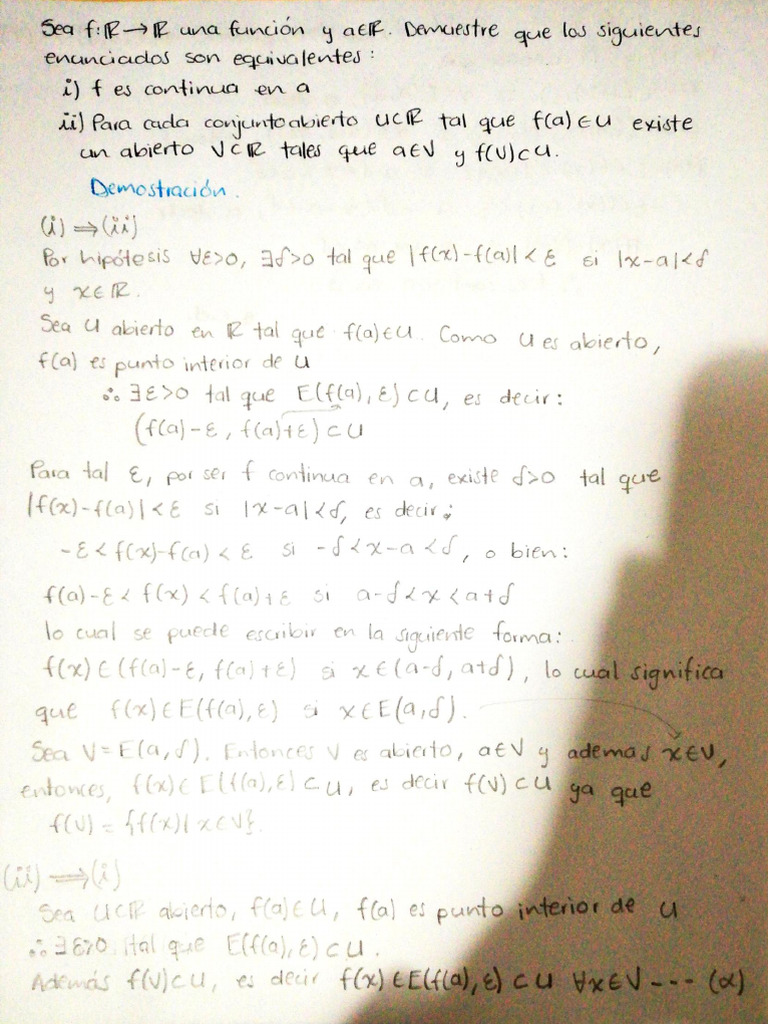 Sea f:ℝ→ℝ una función y a∈ℝ. Demuestre que los siguientes
enunciados son equivalentes:
i) f es continua en a
ii) Para cada conjunto abierto U⊂ℝ tal que f(a)∈U existe
un abierto V⊂ℝ tales que a∈V y f(V)⊂U.
Demostración.
(i) ⟹ (ii)
Por hipótesis ∀ε>0, ∃δ>0 tal que |f(x)-f(a)|<ε si |x-a|<δ
y x∈ℝ.
Sea U abierto en ℝ tal que f(a)∈U. Como U es abierto,
f(a) es punto interior de U
∴ ∃ε>0 tal que E(f(a),ε)⊂U, es decir:
(f(a)-ε, f(a)+ε)⊂U
Para tal ε, por ser f continua en a, existe δ>0 tal que
|f(x)-f(a)|<ε si |x-a|<δ, es decir;
-ε<f(x)-f(a)<ε si -δ<x-a<δ, o bien:
f(a)-ε<f(x)<f(a)+ε si a-δ<x<a+δ
lo cual se puede escribir en la siguiente forma:
f(x)∈(f(a)-ε, f(a)+ε) si x∈(a-δ, a+δ), lo cual significa
que f(x)∈E(f(a),ε) si x∈E(a,δ).
Sea V=E(a,δ). Entonces V es abierto, a∈V y ademas x∈V,
entonces, f(x)∈E(f(a),ε)⊂U, es decir f(V)⊂U ya que
f(V)={f(x)|x∈V}.
(ii) ⟹ (i)
Sea U⊂ℝ abierto, f(a)∈U, f(a) es punto interior de U
∴ ∃ε>0 tal que E(f(a),ε)⊂U.
Además f(V)⊂U, es decir f(x)∈E(f(a),ε)⊂U ∀x∈V --- (α)